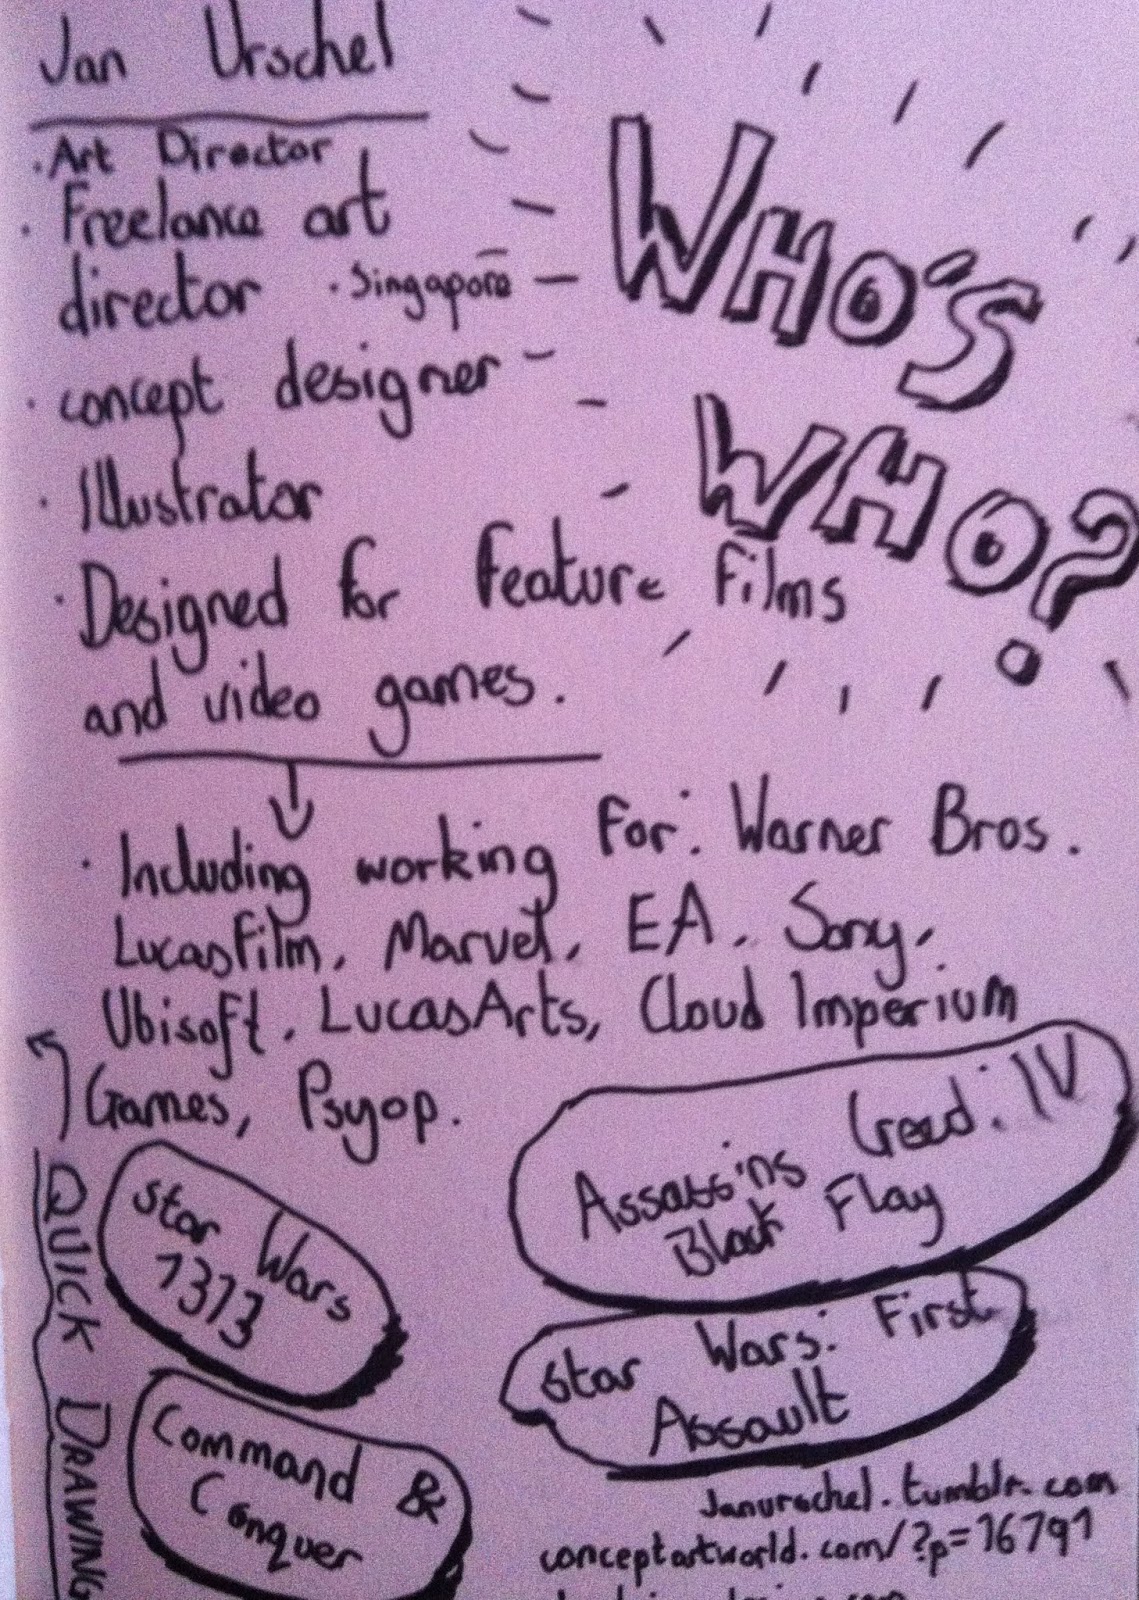 Jan Urschel
WHO'S
WHO?
· Art Director
· Freelance art
director · Singapore
· concept designer
· Illustrator
· Designed for feature films
and video games.
· Including working for: Warner Bros.
Lucasfilm, Marvel, EA, Sony,
Ubisoft, LucasArts, Cloud Imperium
Games, Psyop.
QUICK DRAWING
Star Wars
1313
Assassins Creed: IV
Black Flag
Star Wars: First
Assault
Command &
Conquer
Janurschel.tumblr.com
conceptartworld.com/?p=16791